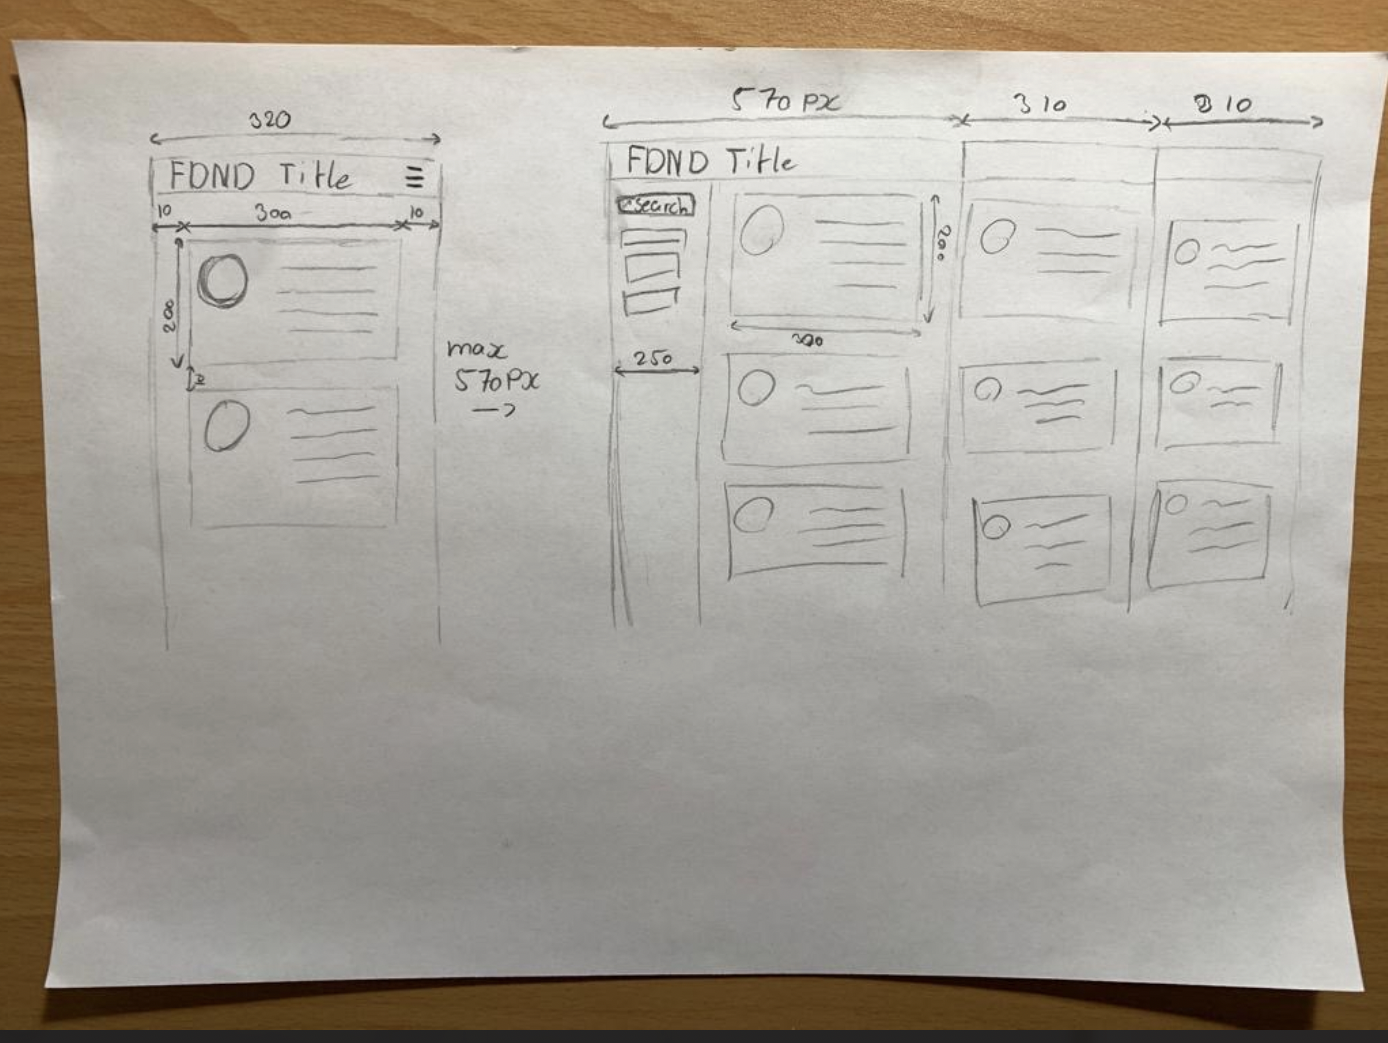 320
FDND Title
10 300 10
200
max
570px
570 px
310
310
FDND Title
Search
200
300
250